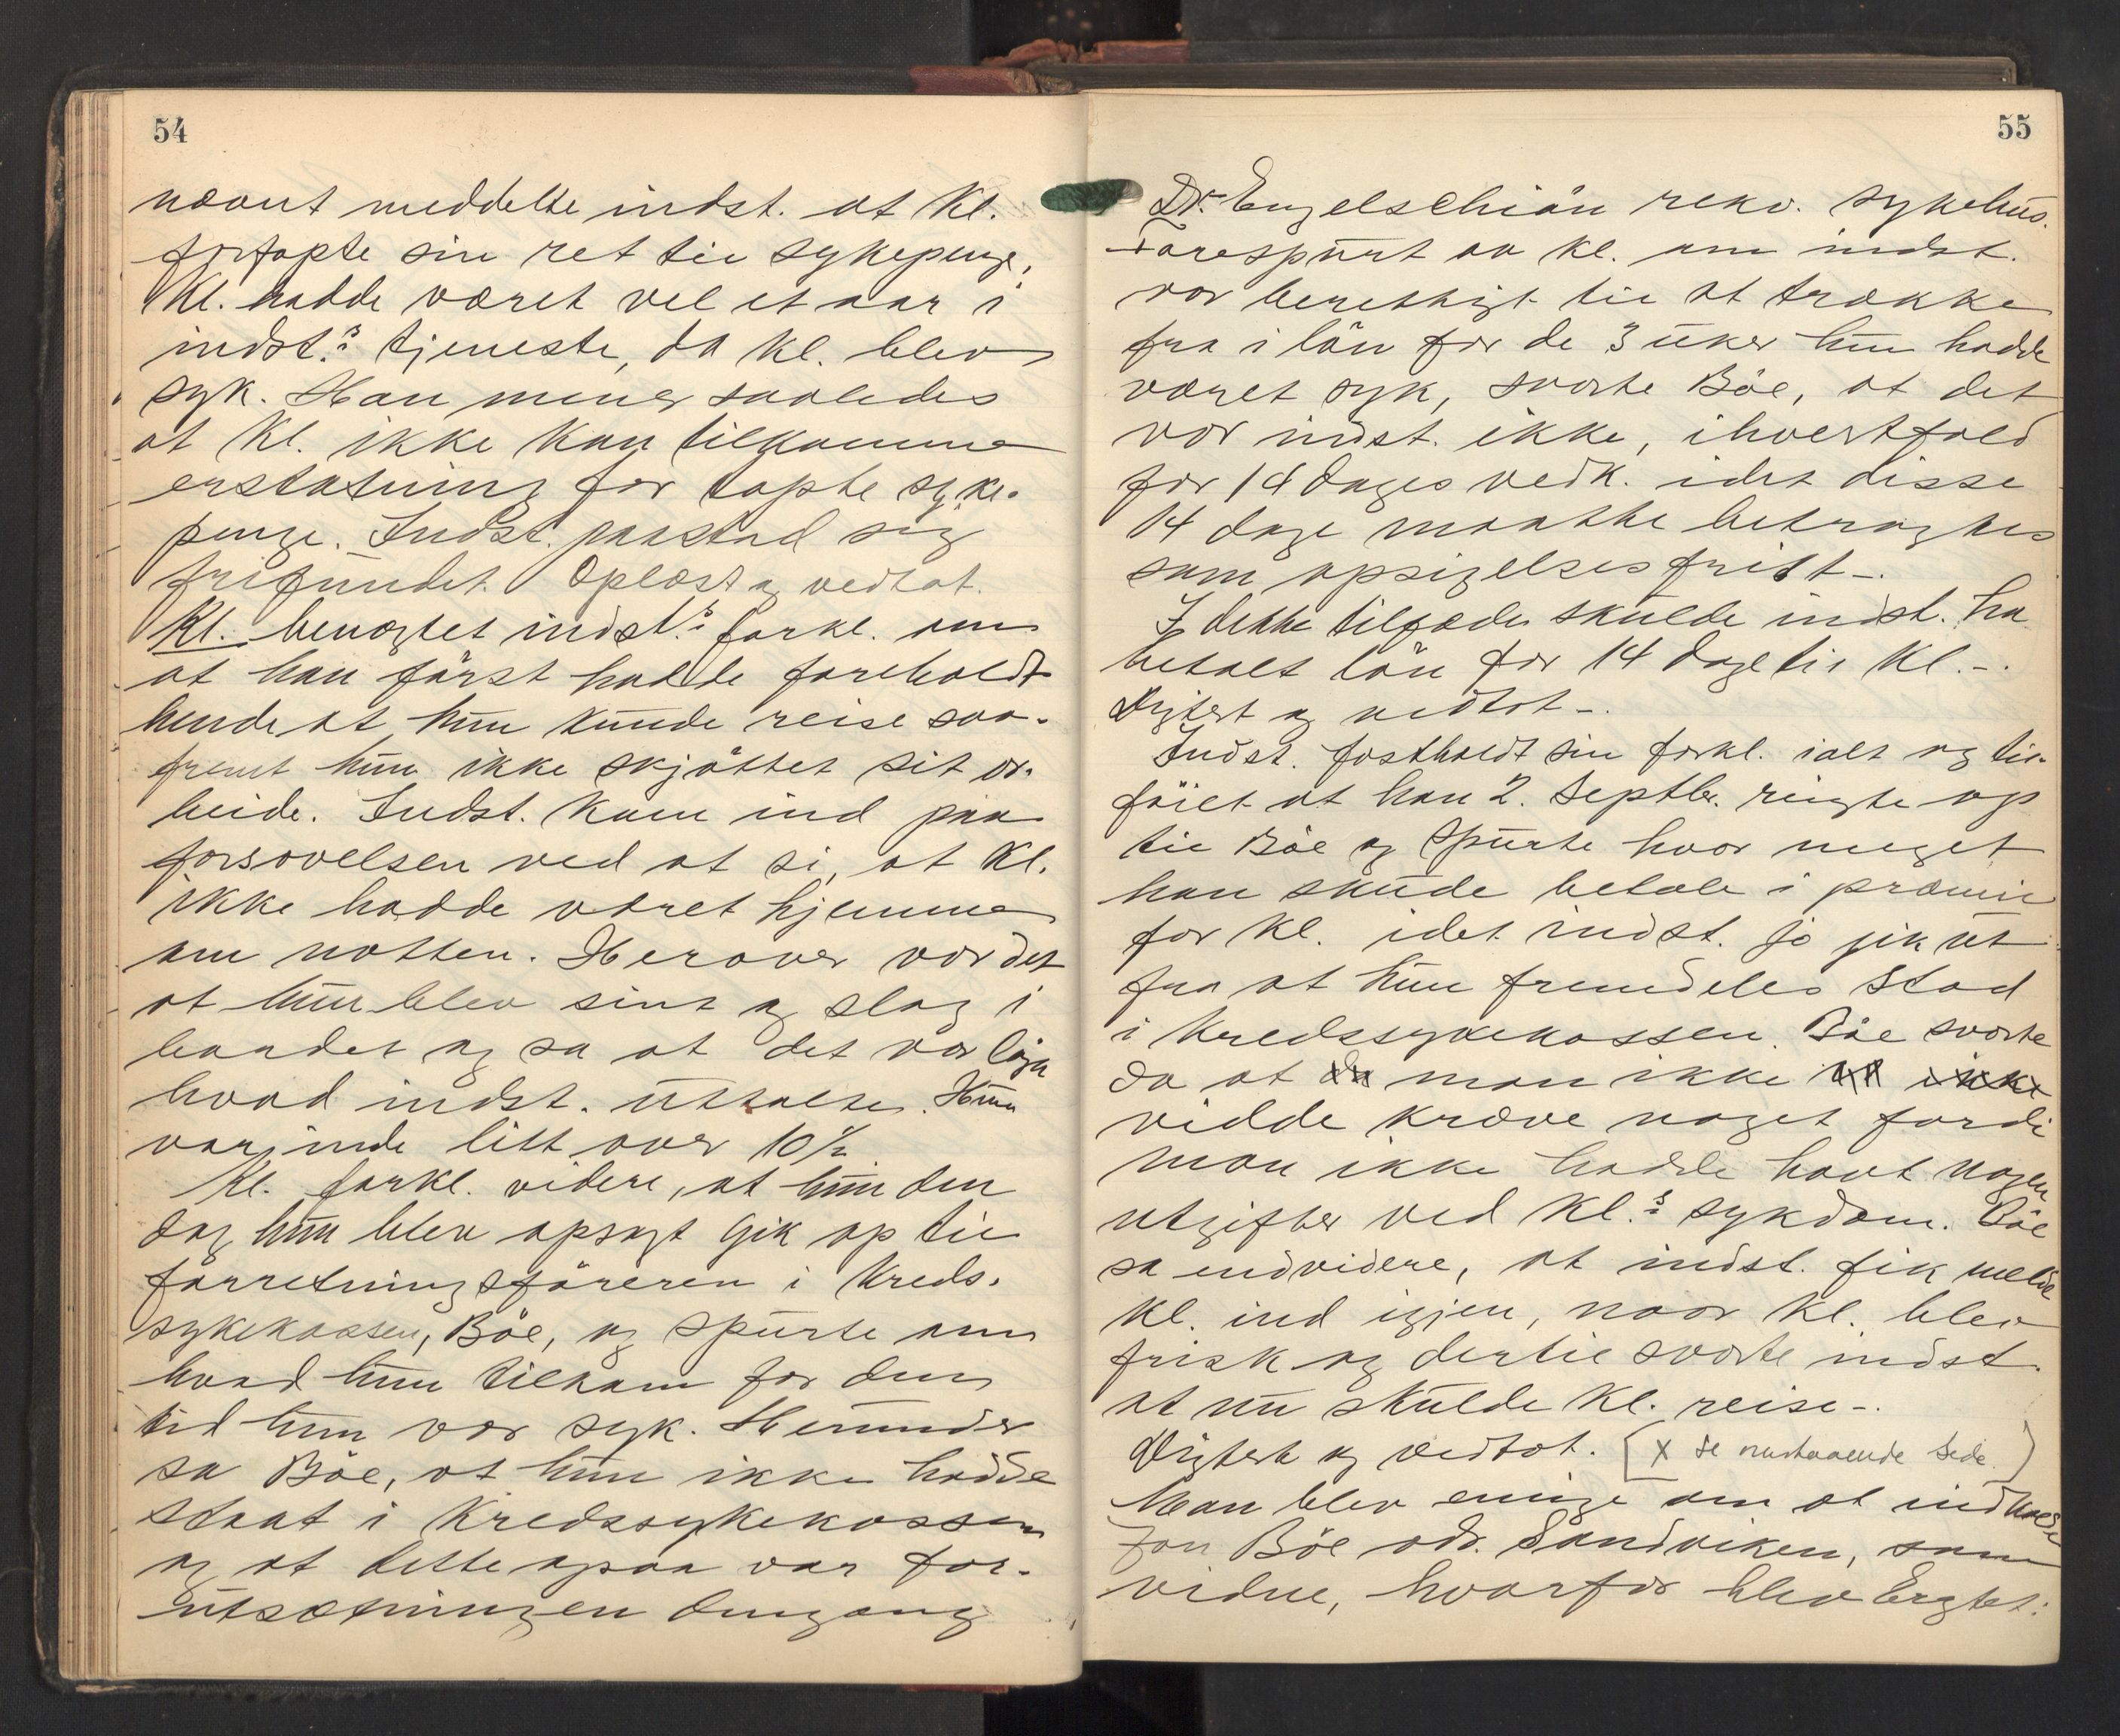 54
nævnt meddelte indst. at Kl.
fortapte sin ret til sykepenge.
Kl. hadde været vel et aar i
indst.s tjeneste, da Kl. blev
syk. Han mener saaledes
at Kl. ikke kan tilkomme
erstatning for tapte syke-
penge. Indst. paastod sig
frifundet. Oplæst og vedtat.
Kl. benegtet indst.s forkl. om
at han først hadde foreholdt
hende at hun kunde reise saa-
fremt hun ikke skjøttet sit ar-
beide. Indst. kom ind paa
forsovelsen ved at si, at Kl.
ikke hadde været hjemme
om natten. Herover var det
at hun blev sint og slog i
bordet og sa at det var løgn
hvad indst. uttalte. Hun
var inde litt over 10½
Kl. forkl. videre, at hun den
dag hun blev opsagt gik op til
forretningsføreren i Kreds-
sykekassen, Böe, og spurte om
hvad hun tilkom for den
tid hun var syk. Herunder
sa Böe, at hun ikke hadde
staat i Kredssykekassen
og at dette ogsaa var for-
utsætningen dengang
55
Dr. Engelschiön rekv. sykehus.
Forespurt av Kl. om indst.
var berettiget til at trække
fra i lön for de 3 uker hun hadde
været syk, svarte Böe, at det
var indst. ikke, ihvertfald
for 14 dages vedk. idet disse
14 dage maatte betragtes
som opsigelsesfrist-.
I dette tilfælde skulde indst. ha
betalt lön for 14 dage til Kl.-.
Dictert og vedtat-.
Indst. fastholdt sin forkl. ialt og til-
föiet at han 2. Septbr. ringte op
til Böe og spurte hvor meget
han skulde betale i præmie
for Kl. idet indst. jo gik ut
fra at hun fremdeles stod
i Kredssykekassen. Böe svarte
da at man ikke
vilde kræve noget fordi
man ikke hadde havt nogen
utgifter ved Kl.s sykdom. Böe
sa endvidere, at indst. fik melde
Kl. ind igjen, naar Kl. blev
frisk og dertil svarte indst.
at nu skulde Kl. reise-.
Dictert og vedtat. [x se nestaaende side.]
Man blev enige om at indkalde
Jon Böe adr. Sandviken, som
vidne, hvorfor blev bragtet: